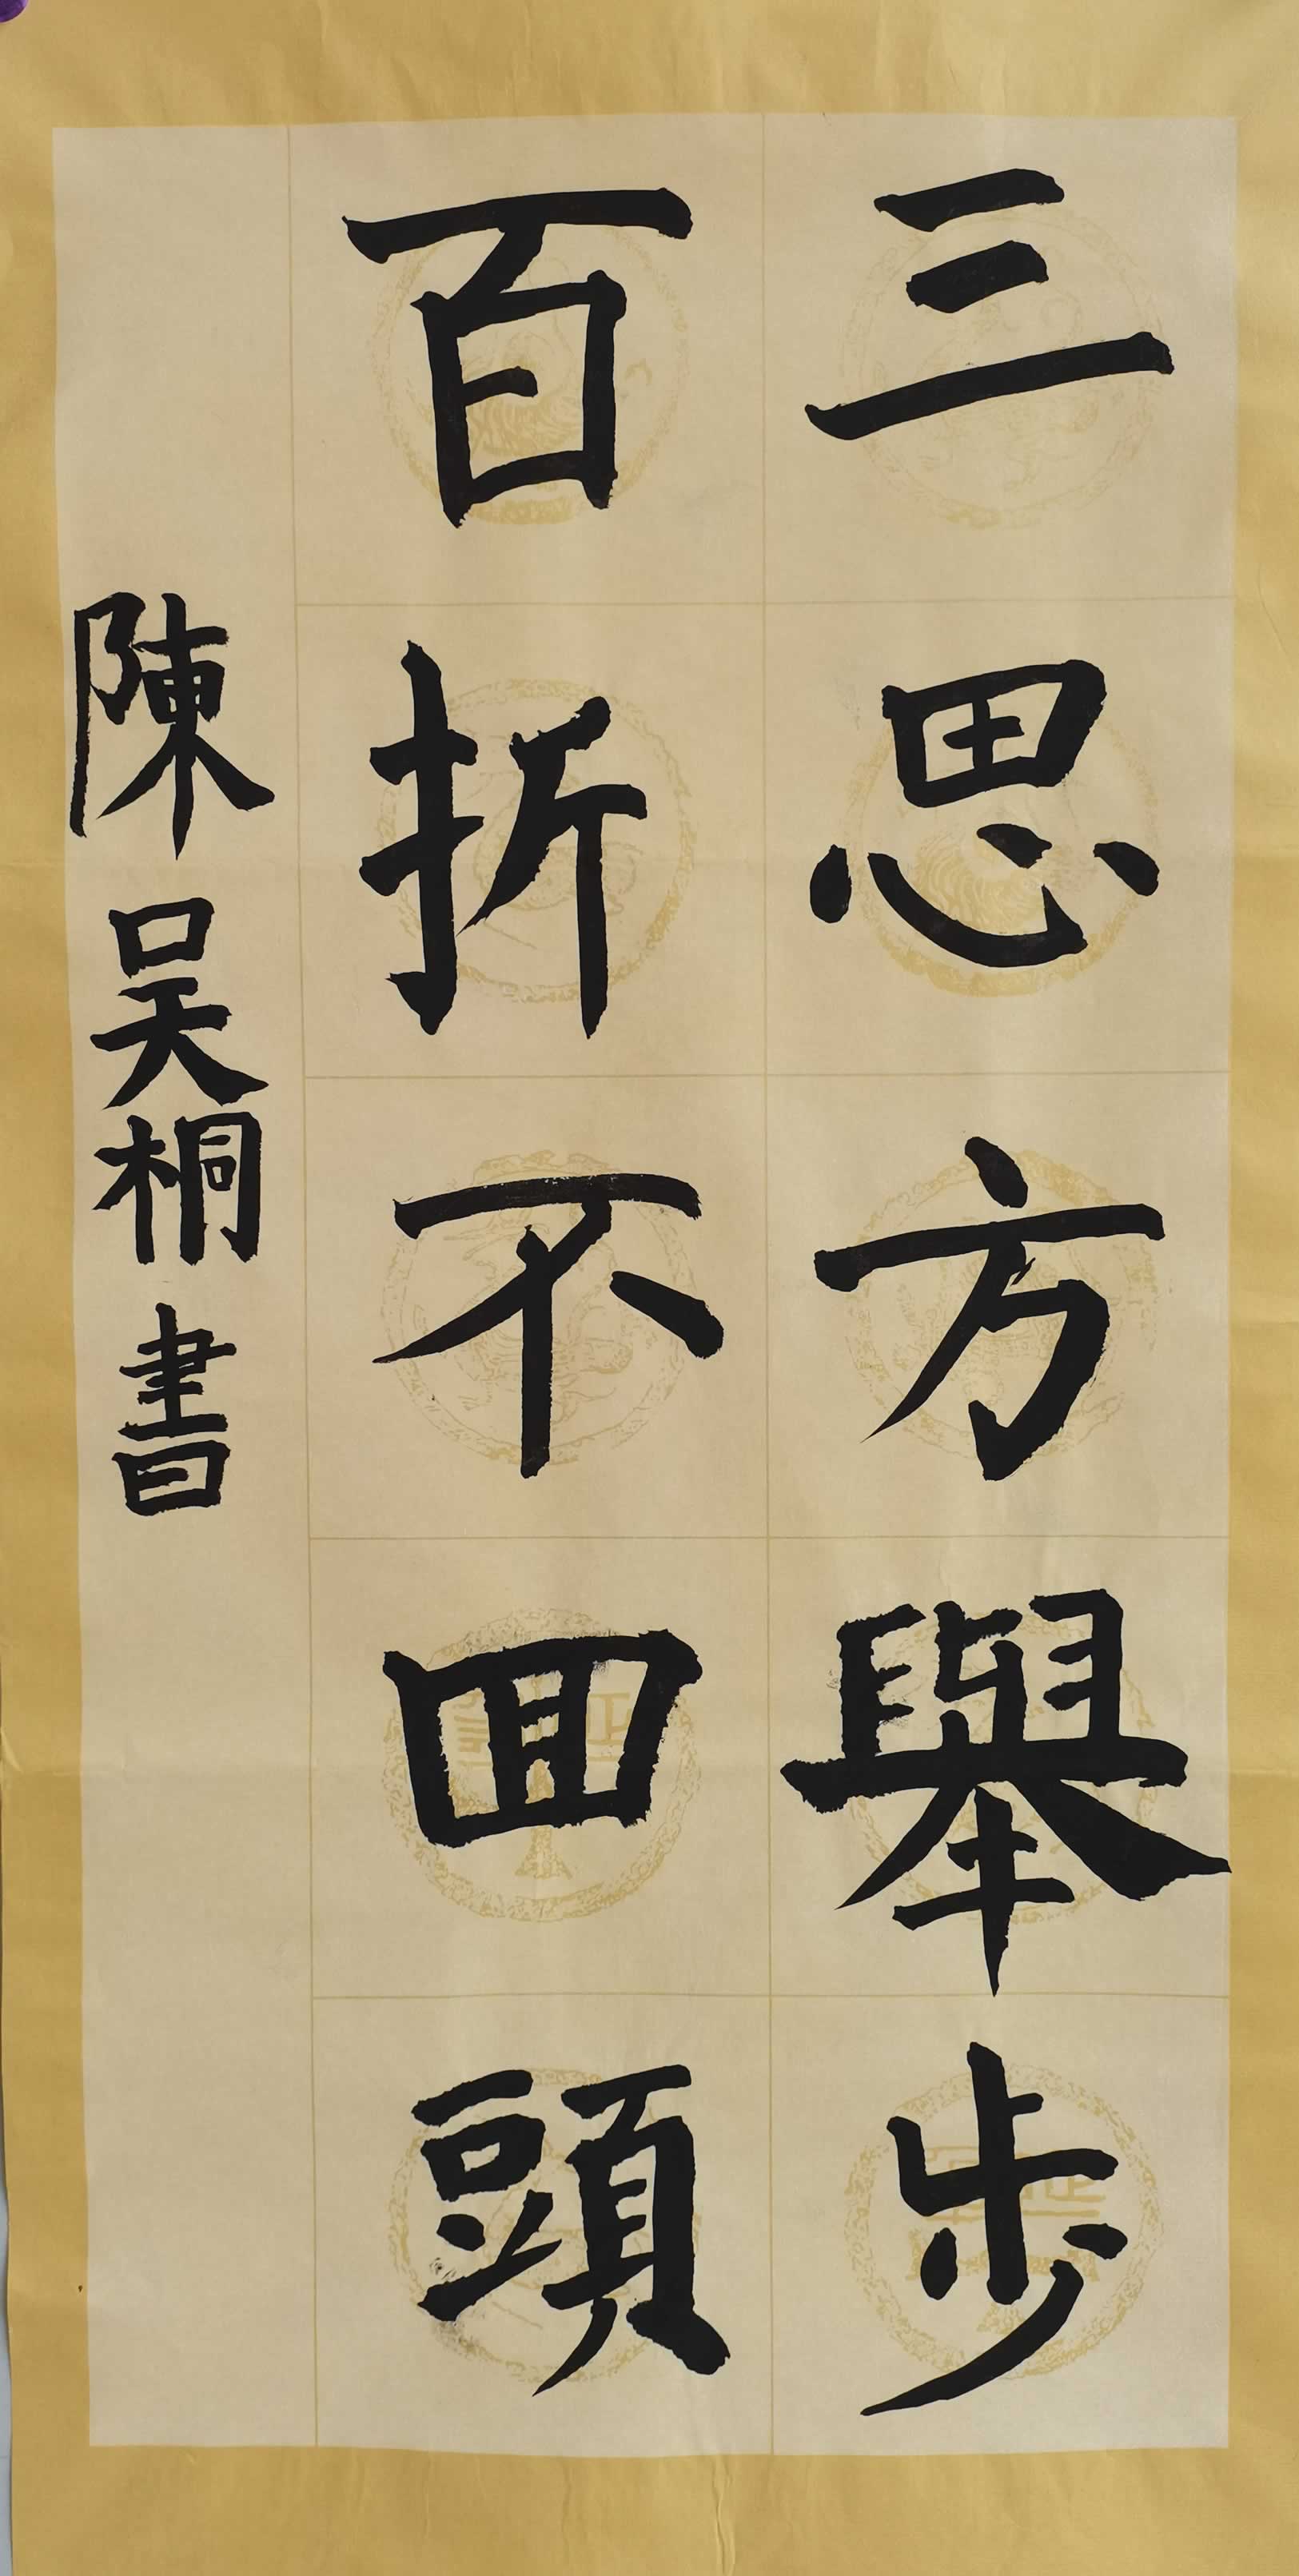 三思方舉步
百折不回頭
陳吴桐書